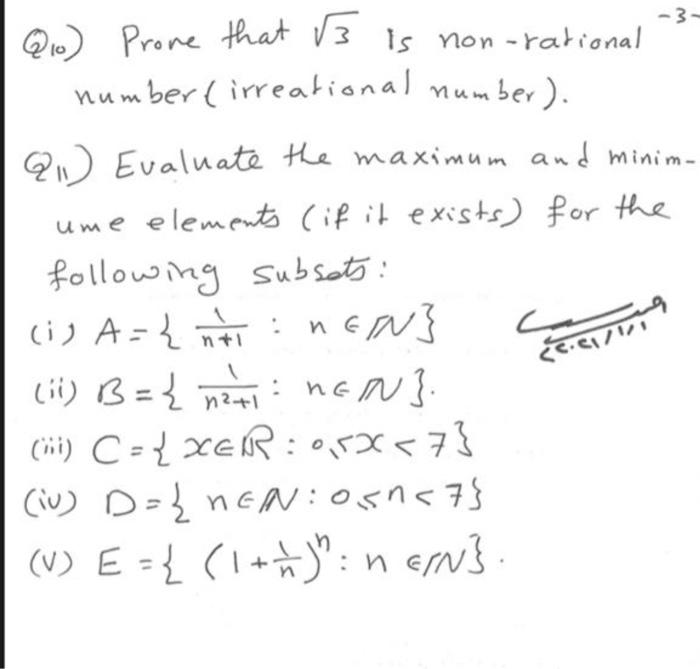 -3-
Q10) Prove that √3 is non-rational
number (irreational number).
Q11) Evaluate the maximum and minim-
ume elements (if it exists) for the
following subsets:
(i) A = { 1/(n+1) : n ∈ ℕ }
(ii) B = { 1/(n²+1) : n ∈ ℕ }.
(iii) C = { x ∈ ℝ : 0 ≤ x < 7 }
(iv) D = { n ∈ ℕ : 0 ≤ n < 7 }
(v) E = { (1 + 1/n)ⁿ : n ∈ ℕ }.